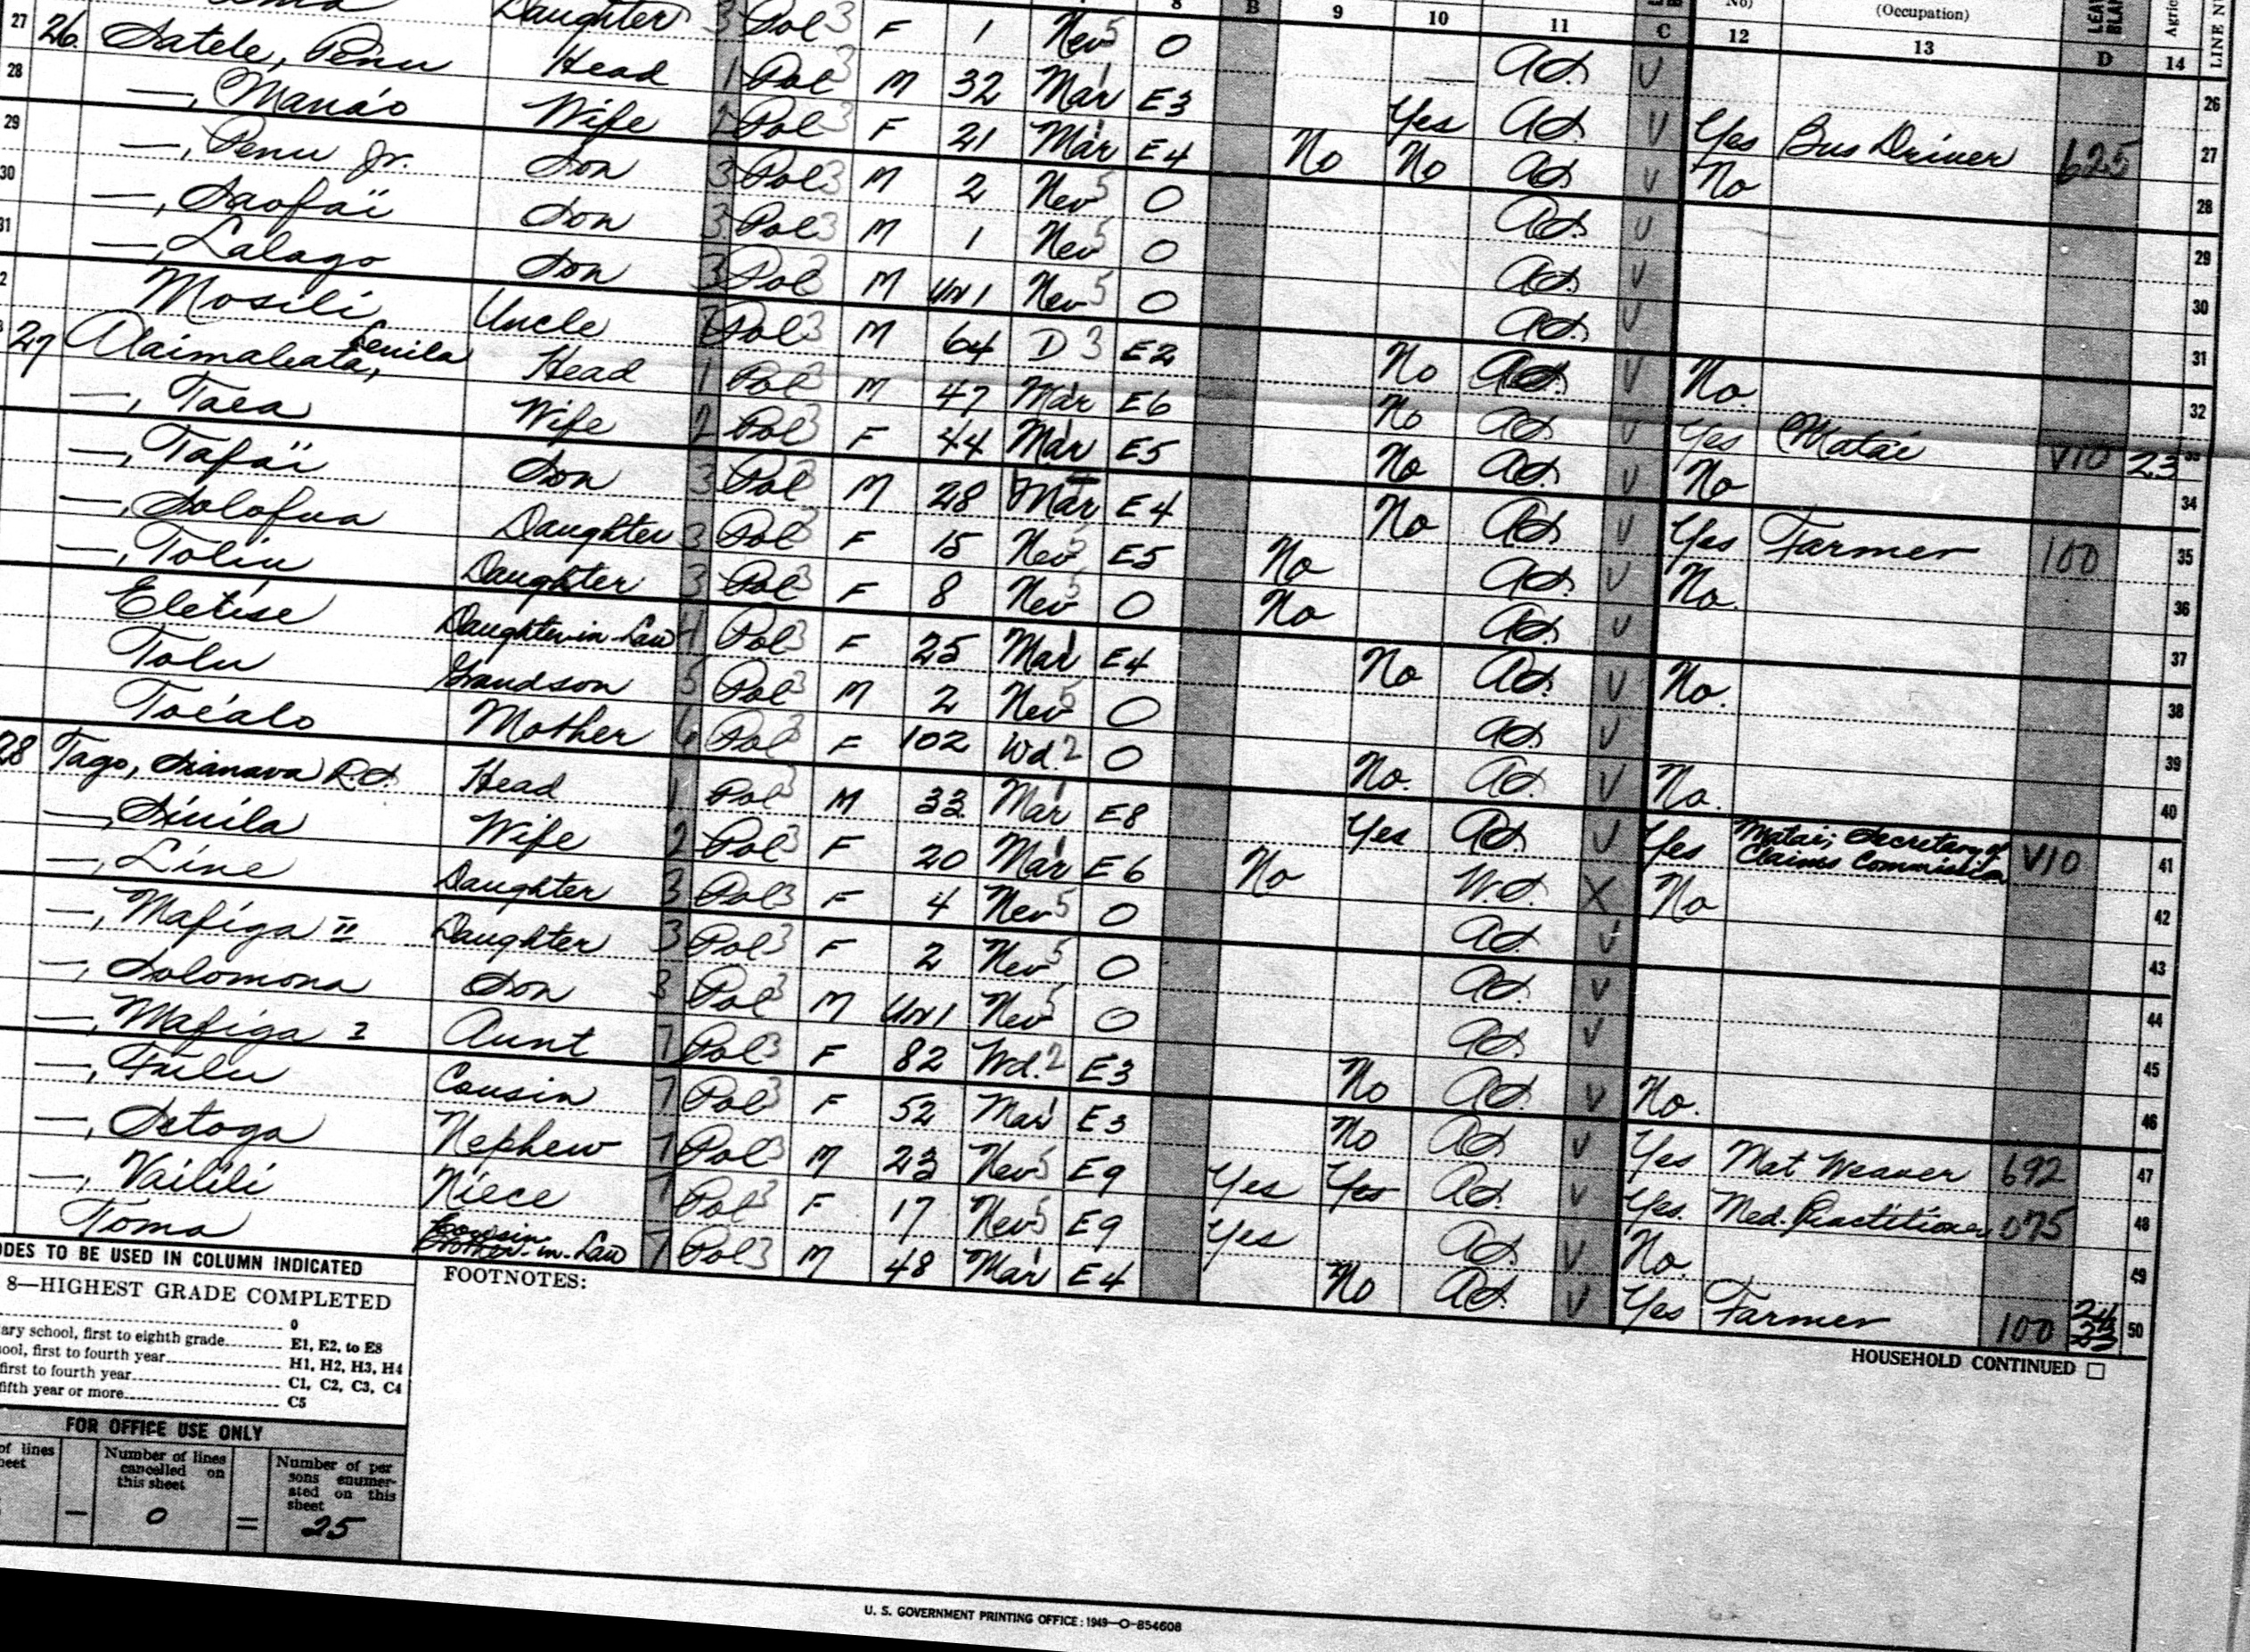 8 B 9 10 11 C 12 No) 13 (Occupation) LEAVE BLANK D 14 Agric LINE N
Daughter 3 Pol 3 F 1 Nev 5 0 Ad. V 26
27 26 Satele, Penu Head 1 Pol 3 M 32 Mar 1 E3 Yes Ad. V Yes Bus Driver 625 27
28 —, Mana'o Wife 2 Pol 3 F 21 Mar E4 No No Ad. V No 28
29 —, Penu Jr. Son 3 Pol 3 M 2 Nev 5 0 Ad. V 29
30 —, Saofa'i Son 3 Pol 3 M 1 Nev 5 0 Ad. V 30
31 —, Lalago Son 3 Pol 3 M UN1 Nev 5 0 Ad. V 31
Mosili Uncle 7 Pol 3 M 64 D 3 E2 No V No. 32
27 Alaimaleata, Head 1 Pol 3 M 47 Mar E6 No Ad. V Yes Matai V10 23
—, Taea Wife 2 Pol 3 F 44 Mar E5 No Ad. V No 34
—, Tafa'i Son 3 Pol M 28 Mar E4 No Ad. V Yes Farmer 100 35
—, Solofua Daughter 3 Pol 3 F 15 Nev 5 E5 No Ad. V No. 36
—, Toliu Daughter 3 Pol 3 F 8 Nev 5 0 No Ad. V 37
Eletise Daughter-in-Law 4 Pol 3 F 25 Mar 1 E4 No Ad. V No. 38
Tolu Grandson 5 Pol 3 M 2 Nev 5 0 Ad. V 39
Toealo Mother 6 Pol 3 F 102 Wd. 2 0 No. Ad. V No. 40
28 Tago, Sianava R.S. Head 1 Pol 3 M 33 Mar 1 E8 Yes Ad. V Yes Matai; Secretary of Claims Commission V10 41
—, Siuila Wife 2 Pol 3 F 20 Mar 1 E6 No W.S. X No 42
—, Line Daughter 3 Pol 3 F 4 Nev 5 0 Ad. V 43
—, Mafiga II Daughter 3 Pol 3 F 2 Nev 5 0 Ad. V 44
—, Solomona Son 3 Pol 3 M UN1 Nev 5 0 Ad. V 45
—, Mafiga I Aunt 7 Pol 3 F 82 Wd. 2 E3 No Ad. V No. 46
—, Fulu Cousin 7 Pol 3 F 52 Mar 1 E3 No Ad. V Yes Mat Weaver 692 47
—, Setoga Nephew 7 Pol 3 M 23 Nev 5 E9 Yes Yes Ad. V Yes. Med. Practitioner 075 48
—, Vailili Niece 7 Pol 3 F 17 Nev 5 E9 Yes Ad. V No. 49
Toma Cousin-in-Law 7 Pol 3 M 48 Mar 1 E4 No Ad. V Yes Farmer 100 24 50
ODES TO BE USED IN COLUMN INDICATED
FOOTNOTES:
HOUSEHOLD CONTINUED
8—HIGHEST GRADE COMPLETED
0
ary school, first to eighth grade E1, E2, to E8
ool, first to fourth year H1, H2, H3, H4
first to fourth year C1, C2, C3, C4
fifth year or more C5
FOR OFFICE USE ONLY
of lines
heet
—
Number of lines cancelled on this sheet
0
=
Number of persons enumerated on this sheet
25
U. S. GOVERNMENT PRINTING OFFICE : 1949—O-854608